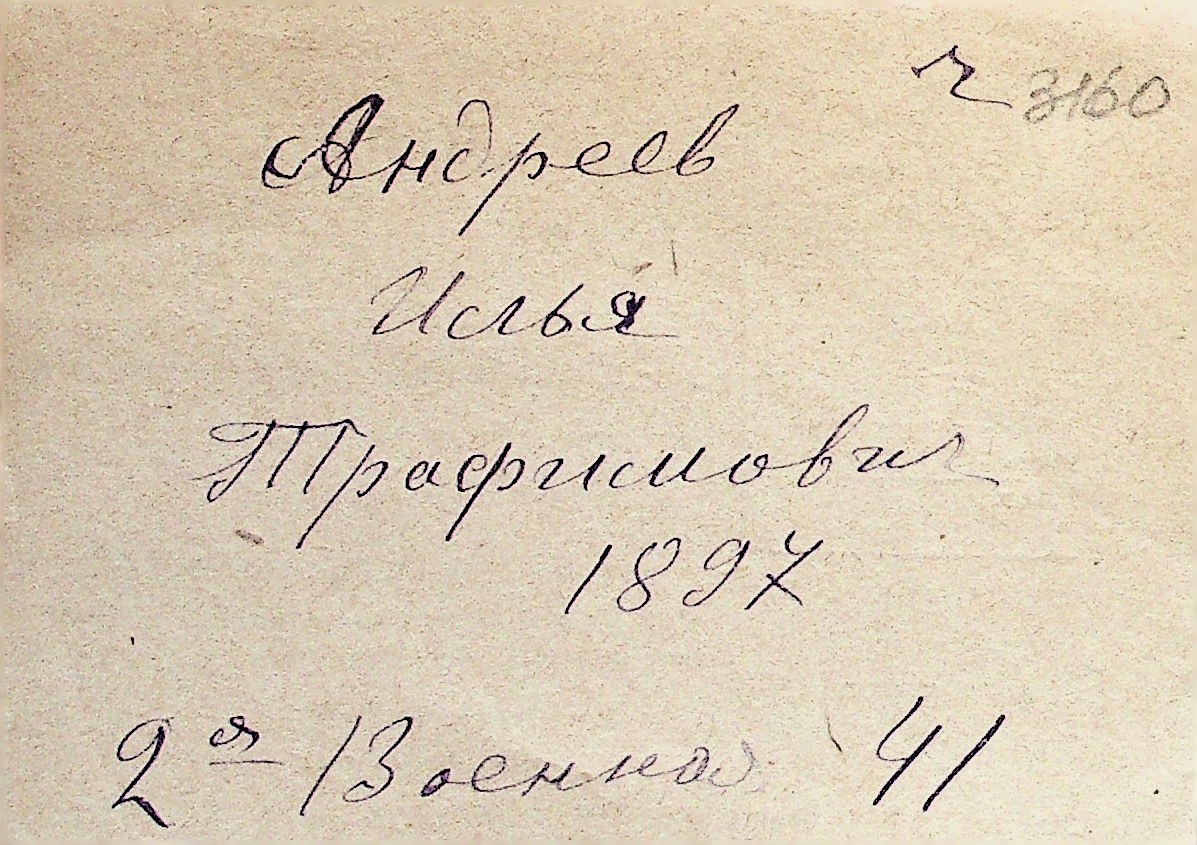 ч 3160
Андреев
Илья
Трафимович
1897
2я Военная 41